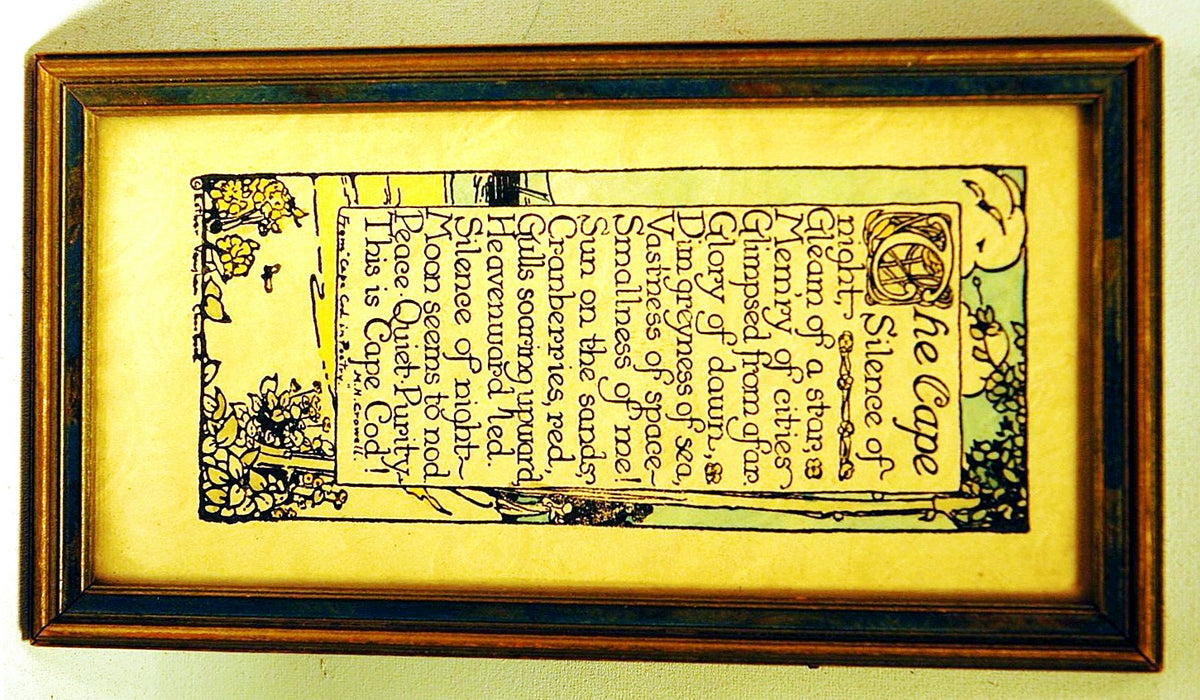 The Cape
Silence of
night,
Gleam of a star,
Mem'ry of cities
Glimpsed from afar
Glory of dawn,
Dim greyness of sea,
Vastness of space~
Smallness of me!
Sun on the sands,
Cranberries, red,
Gulls soaring upward,
Heavenward hed.
Silence of night~
Moon seems to nod
Peace·Quiet·Purity,
This is Cape Cod!
From "Cape Cod in Poetry"
M.H. Crowell.
©